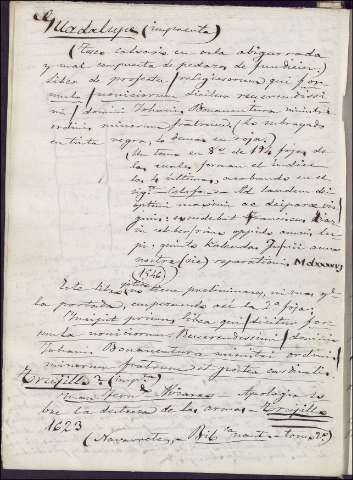 Guadalupe (imprenta)
(Tosco calvario en orla abigarrada
y mal compuesta de pedazos de fundicion.)
Liber de profectu / religiosorum qui for-
mula / noviciorum dicitur reverendissi-
mi / domini Johanis Bonaventura ministri
ordinis minorum fratrum / (Lo subrayado
en tinta negra, lo demas en roja.)
(Un tomo en 8º de 194 fojas de
las cuales forman el indice
las 4 ultimas, acabando en el
Ad laudem dei
optimi maximi ac deipare vir
ginis: excudebat Franciscus Diaz
oppido anno
quinto Kalendas Junii anno
nostre (sic) reparationis Mdxxxxvj
(1546)
Este libro tiene preliminares, ni mas qe
la portada, empezando así la 2ª foja:
Incipit primus liber qui / dicitur for-
mula noviciorum Reverendissimi / domini
Johanis Bonaventura ministri ordinis
minorum fratrum et postea cardinalis.
Trujillo (impta)
Juan Pizarro - Apologia so
bre la destreza de las armas - Trujillo
1623
(Navarrete, - Bibca mart - tomo 2º)